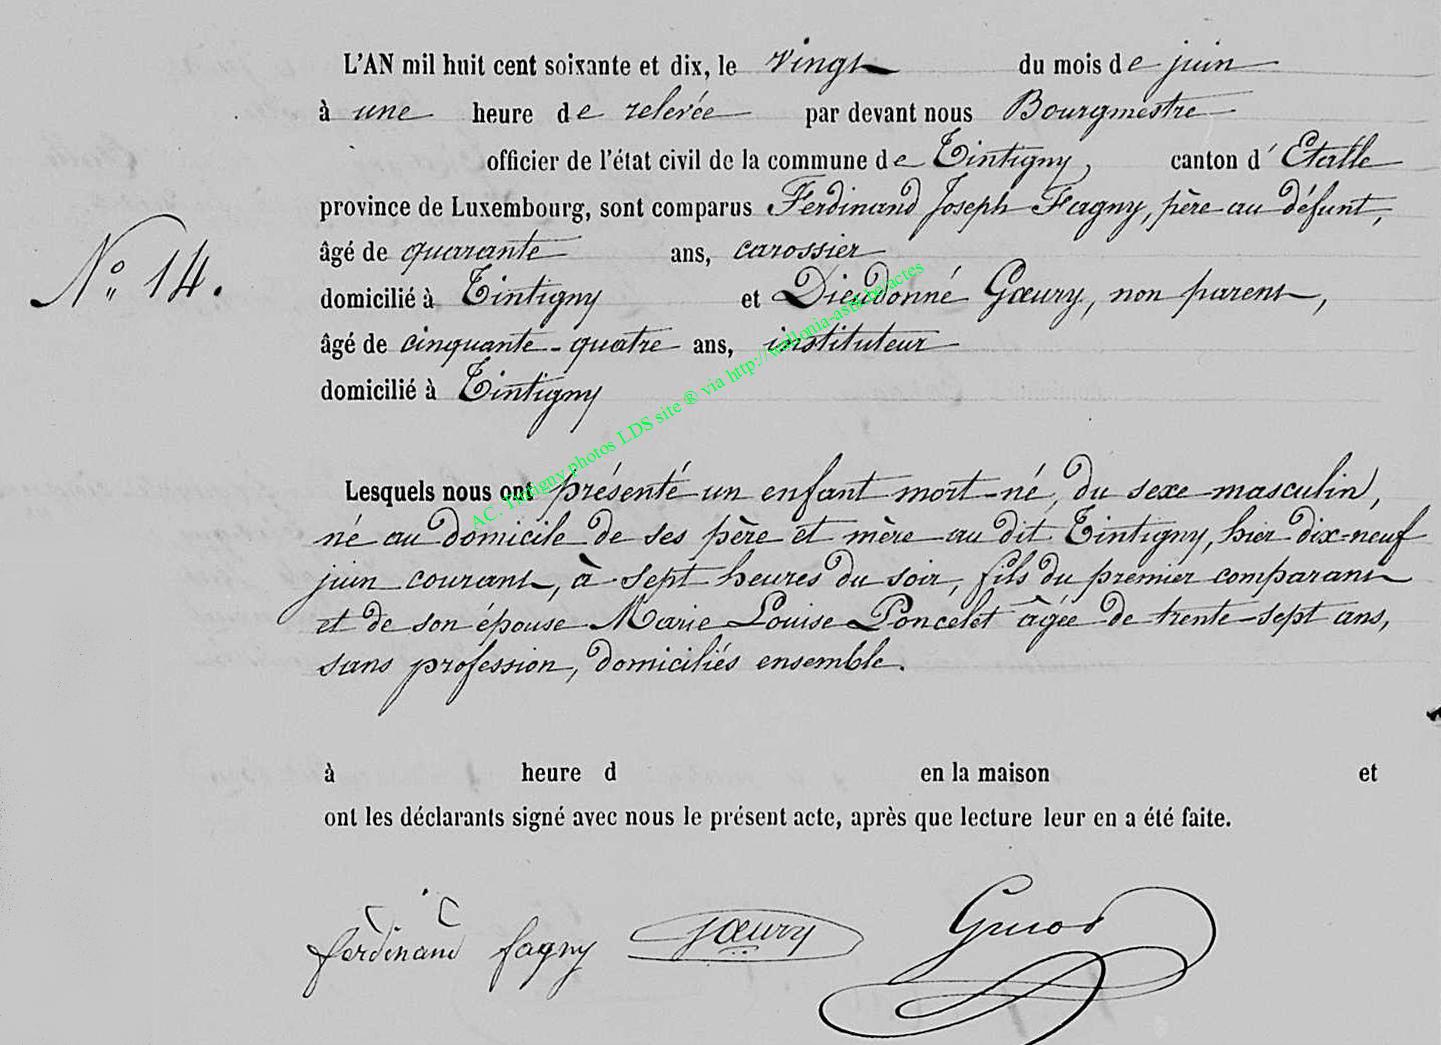 L'AN mil huit cent soixante et dix, le vingt du mois de juin
à une heure de relevée par devant nous Bourgmestre
officier de l'état civil de la commune de Tintigny, canton d'Etalle
province de Luxembourg, sont comparus Ferdinand Joseph Fagny, père au défunt,
N° 14.
âgé de quarante ans, carossier
domicilié à Tintigny et Dieudonné Gœury, non parent,
âgé de cinquante-quatre ans, instituteur
domicilié à Tintigny
AC. Tintigny photos LDS site ® via http://wallonia-asbl.be/actes
Lesquels nous ont présenté un enfant mort-né, du sexe masculin,
né au domicile de ses père et mère au dit Tintigny, hier dix-neuf
juin courant, à sept heures du soir, fils du premier comparant
et de son épouse Marie Louise Poncelet âgée de trente-sept ans,
sans profession, domiciliés ensemble.
à heure d en la maison et
ont les déclarants signé avec nous le présent acte, après que lecture leur en a été faite.
ferdinand fagny Gœury